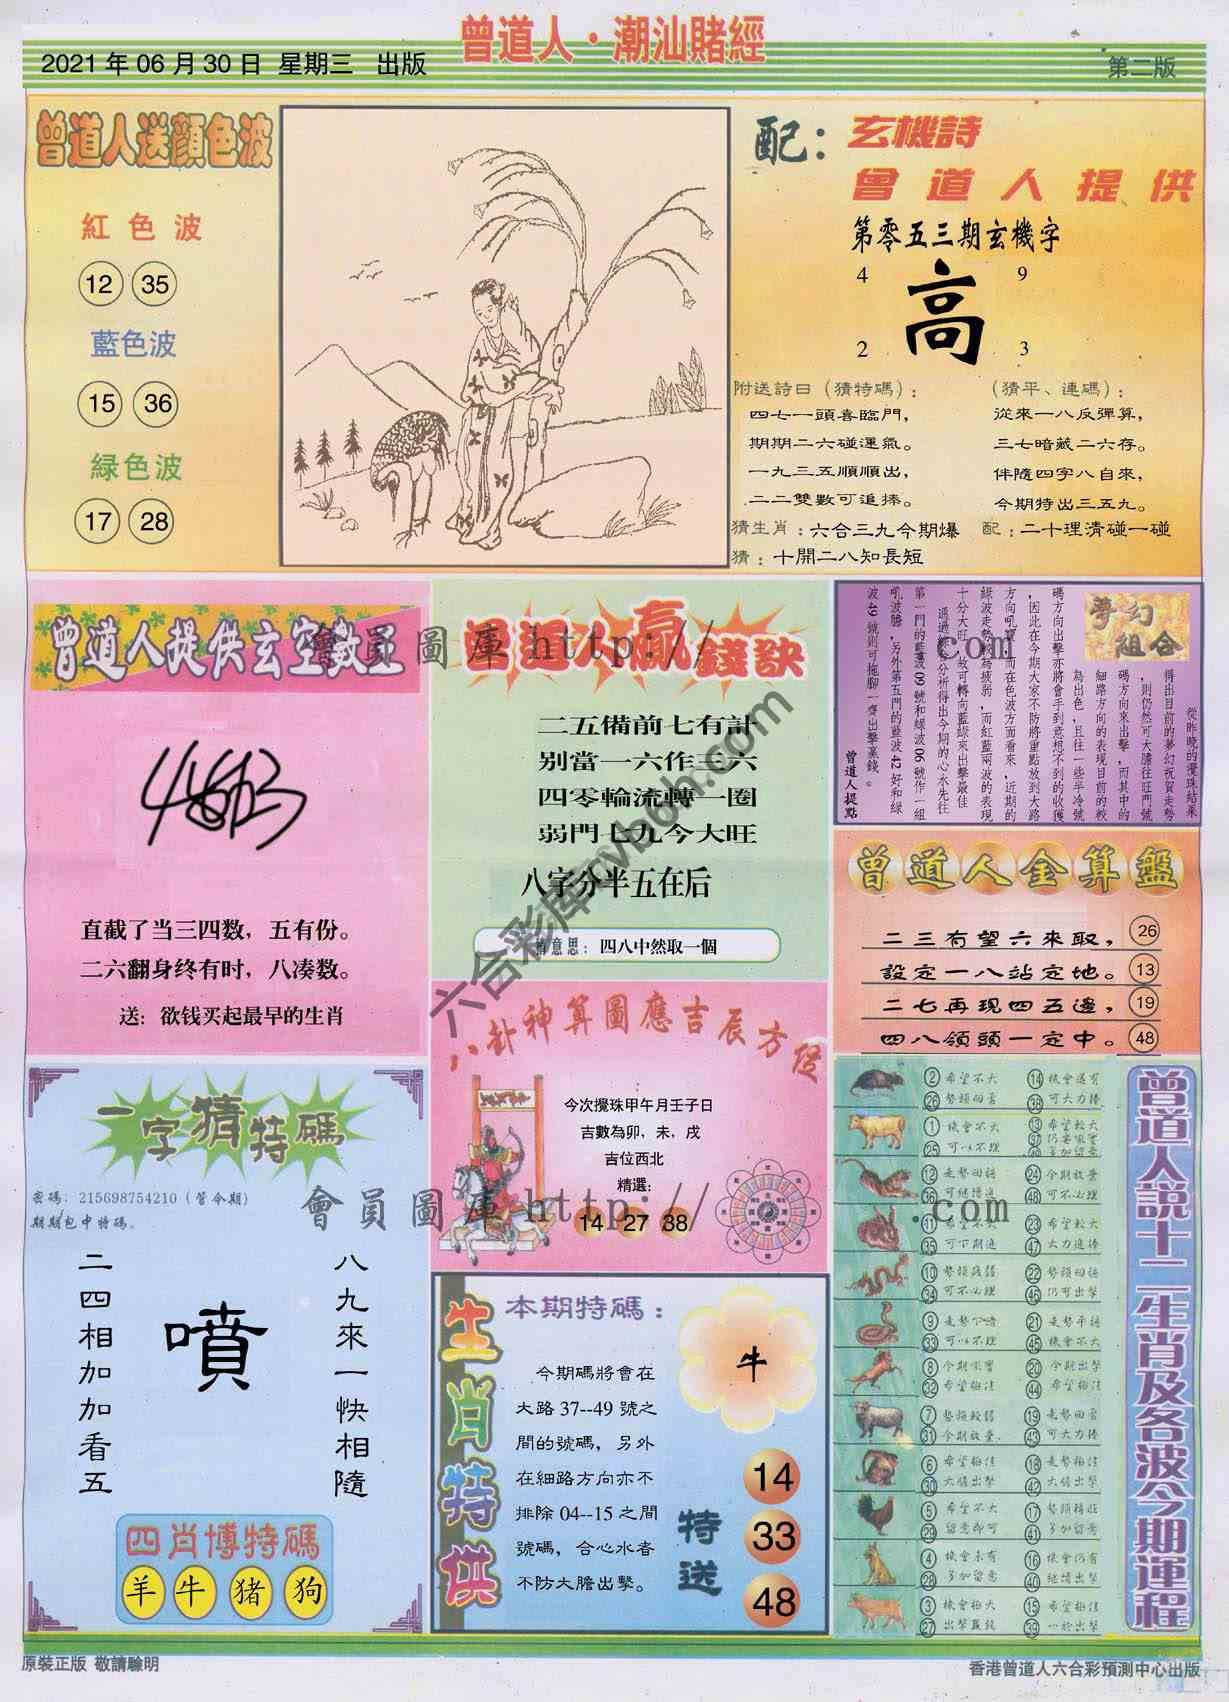 曾道人·潮汕賭經
2021 年 06 月 30 日 星期三 出版
第二版
曾道人送顏色波
紅色波
12 35
藍色波
15 36
綠色波
17 28
配：
玄機詩
曾道人提供
第零五三期玄機字
4 9
高
2 3
附送詩曰（猜特碼）：
四七一頭喜臨門，
期期二六碰運氣。
一九三五順順出，
二二雙數可追捧。
（猜平、連碼）：
從來一八反彈算，
三七暗藏二六存。
伴隨四字八自來，
今期特出三五九。
猜生肖：六合三九今期爆 配：二十理清碰一碰
猜：十開二八知長短
曾道人提供玄空數
直截了当三四数，五有份。
二六翻身终有时，八凑数。
送：欲钱买起最早的生肖
曾道人贏錢訣
二五備前七有計
别當一六作三六
四零輪流轉一圈
弱門七九今大旺
八字分半五在后
意思：四八中然取一個
夢幻
組合
從昨晚的攪珠結果
得出目前的夢幻祝賀走勢
，則仍然可大膽往旺門號
碼方向來出擊，而其中的
細路方向的表現目前的較
為出色，且往一些半冷號
碼方向出擊亦將會手到意想不到的收獲
，因此在今期大家不防將重點放到大路
方向吼寶，而在色波方面看來，近期的
綠波走勢較為疲弱，而紅藍兩波的表現
十分大旺，故可轉向藍綠來出擊最佳
通過綜合分析得出今期的心水先往
第一門的藍波 09 號和綠波 06 號作一組
吼波膽，另外第五門的藍波 42 好和綠
波 49 號則可拖腳一齊出擊贏錢。
曾道人提點
曾道人金算盤
二三有望六來取， 26
設定一八站定地。 13
二七再現四五邊， 19
四八領頭一定中。 48
八卦神算圖應吉辰方位
今次攪珠甲午月壬子日
吉數為卯，未，戌
吉位西北
精選：
14 27 38
一字猜特碼
密碼：215698754210（管今期）
期期包中特碼。
八九來一快相隨
噴
二四相加加看五
四肖博特碼
羊 牛 猪 狗
生肖特供
本期特碼：
今期碼將會在
大路 37--49 號之
間的號碼，另外
在細路方向亦不
排除 04--15 之間
號碼，合心水者
不防大膽出擊。
牛
特送
14
33
48
曾道人説十二生肖及各波今期運程
2 希望不大 14 機會還有
26 勢頭回落 38 可大力捧
1 機會不大 13 希望較大
25 可以不理 37
12 走勢回穩 24 今期放棄
36 可繼續追 48 可不必理
11 希望不大 23 希望較大
35 可下期追 47 大力追捧
10 勢頭疲弱 22 勢頭回穩
34 可不必理 46 仍可出擊
9 走勢下滑 21 走勢平穩
33 可以不理 45 機會不大
8 今期吼實 20 今期出擊
32 希望極佳 44 希望極佳
7 勢頭較弱 19 走勢回落
31 今期放棄 43 可大力捧
6 希望極佳 18 走勢極佳
30 大膽出擊 42 大膽出擊
5 希望不大 17 勢頭轉旺
29 留意即可 41 多加留意
4 機會未有 16 機會仍有
28 多加留意 40 繼續出擊
3 機會極大 15 希望極佳
27 出擊贏錢 39 一於出擊
原裝正版 敬請驗明
香港曾道人六合彩預測中心出版
會員圖庫 http:// .com
會員圖庫 http:// .com
六合彩库cvb6h.com